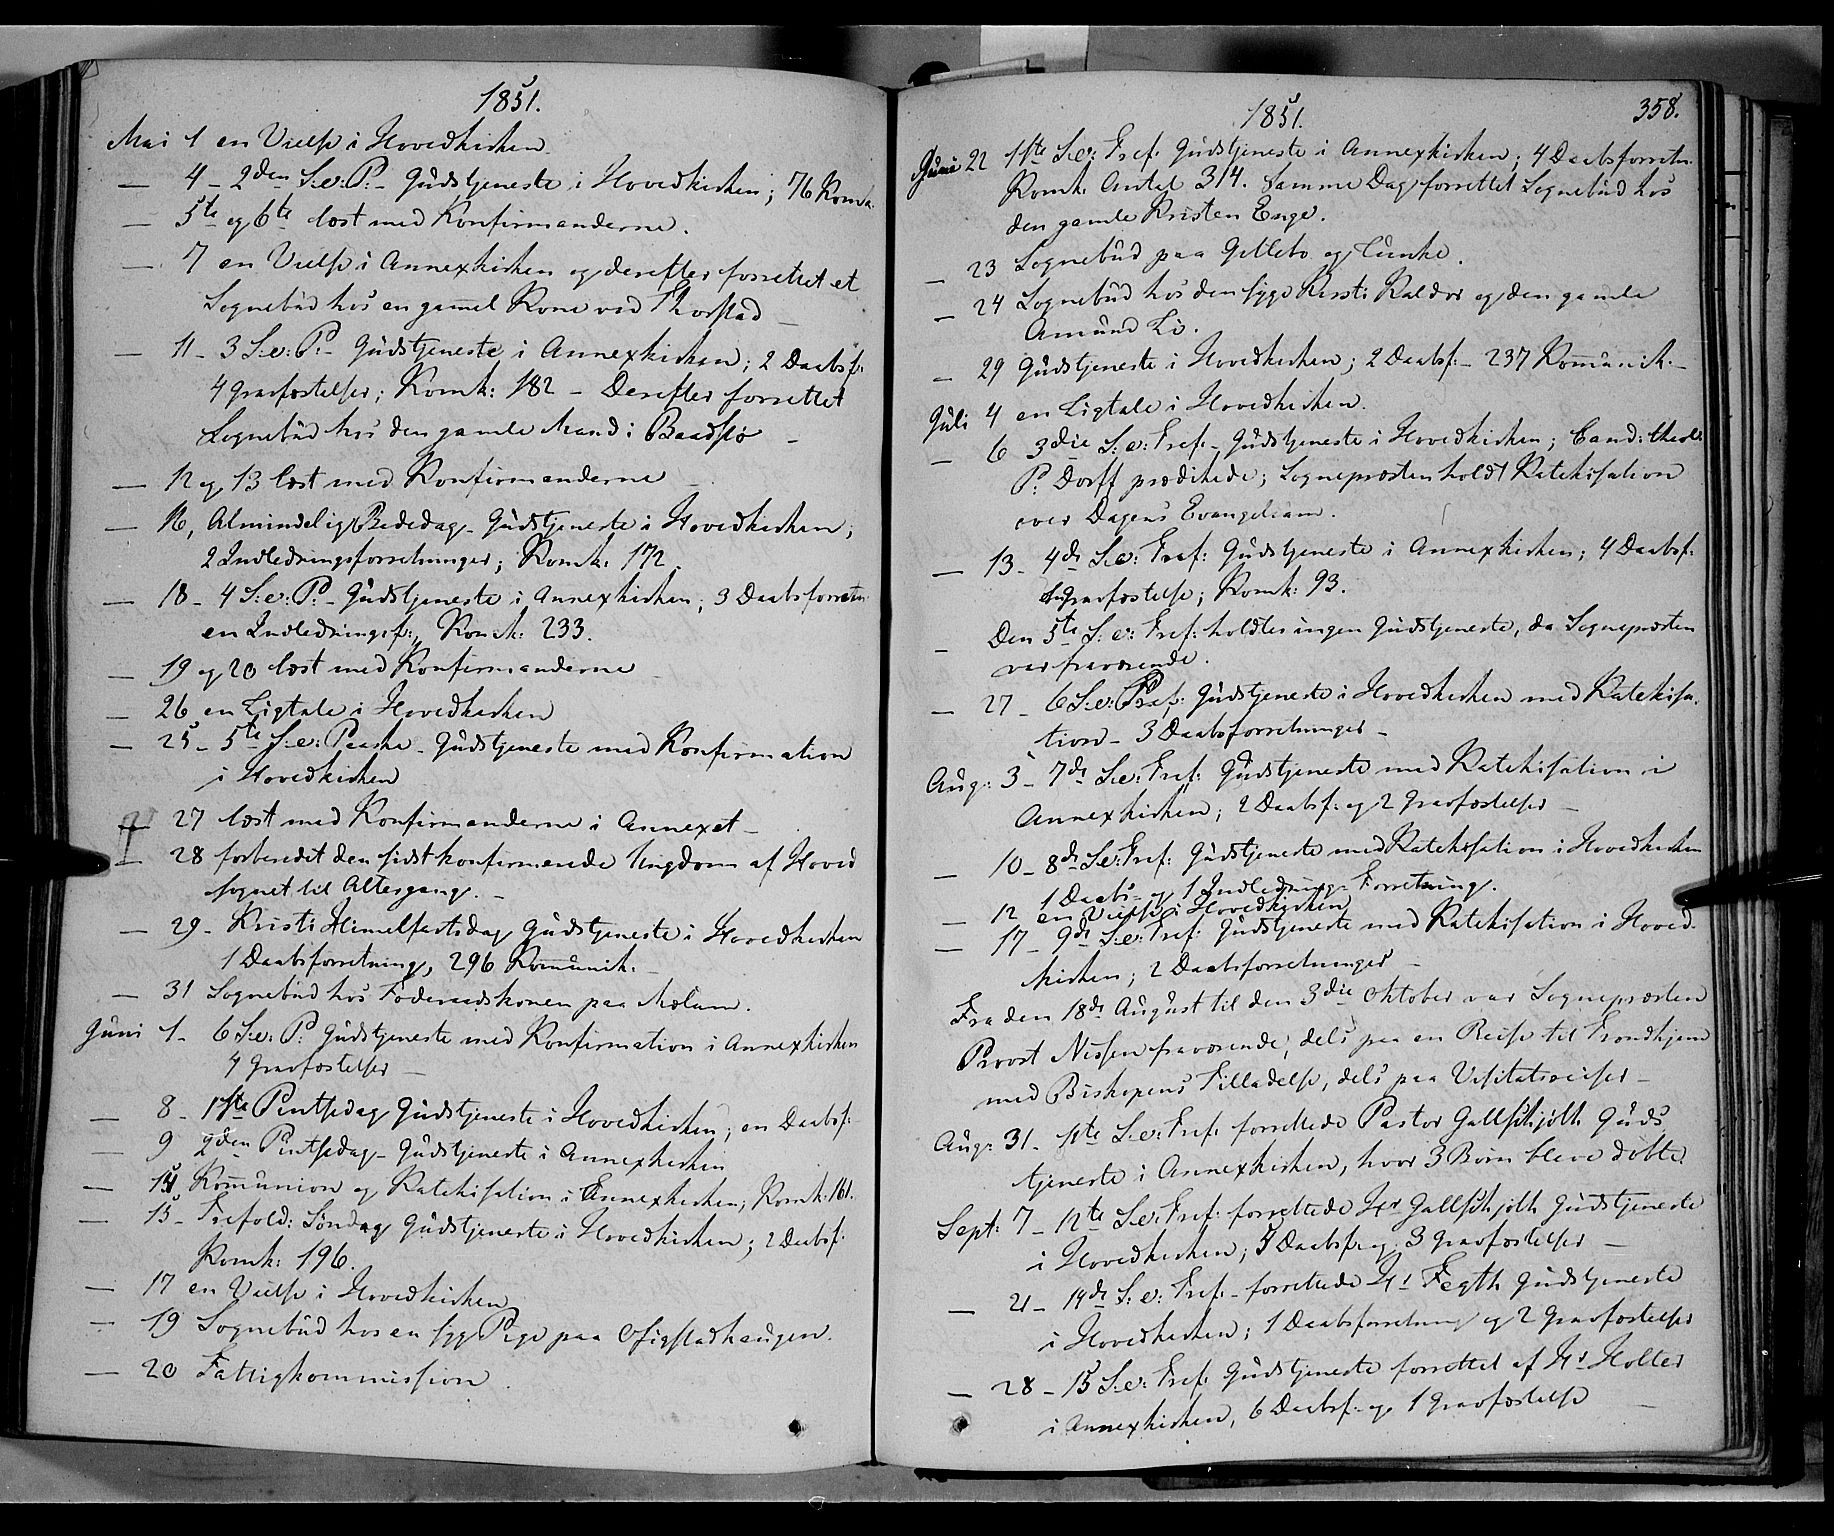 1851.
Mai 1 en Vielse i Hovedkirken
— 4 – 2den S: e: P: – Gudstjeneste i Hovedkirken; 76 Komk.
— 5te og 6te læst med Konfirmanderne.
— 7 en Vielse i Annexkirken og derefter forrettet et
Sognebud hos en gammel Kone ved Thorstad –
— 11 – 3 S: e: P: – Gudstjeneste i Annexkirken; 2 Daabsf:
4 Gravfæstelser; Komk: 182 – Derefter forrettet
Sognebud hos den gamle Mand i Baadstø –
— 12 og 13 læst med Konfirmanderne –
— 16, Almindelig Bededag – Gudstjeneste i Hovedkirken;
2 Indledningsforretninger; Komk: 172.
— 18 – 4 S: e: P: – Gudstjeneste i Annexkirken; 3 Daabsforretn:
en Indledningsf:, Komk: 233.
— 19 og 20 læst med Konfirmanderne
— 26 en Ligtale i Hovedkirken
— 25 – 5te S: e: Paaske – Gudstjeneste med Konfirmation
i Hovedkirken
— 27 læst med Konfirmanderne i Annexet –
— 28 forberedet den sidst konfirmerede Ungdom af Hoved
sognet til Altergang. –
— 29 – Kristi Himmelfartsdag Gudstjeneste i Hovedkirken
1 Daabsforretning, 296 Kommunik: –
— 31 Sognebud hos Føderaadskonen paa Melum.
Juni 1 – 6 S: e: P: Gudstjeneste med Konfirmation i Annexkirken
4 Gravfæstelser –
— 8 – 1ste Pintsedag Gudstjeneste i Hovedkirken; en Daabsf: –
— 9 2den Pintsedag – Gudstjeneste i Annexkirken
— 14 Kommunion og Katekisation i Annexkirken; Komk: 161.
— 15 – Trefold: Søndag Gudstjeneste i Hovedkirken; 2 Daabsf:
Komk: 196.
— 17 en Vielse i Hovedkirken
— 19 Sognebud hos en syg Pige paa Ofigstadhaugen.
— 20 Fattigkommission.
1851.
358.
Juni 22 1ste S: e: Tref: Gudstjeneste i Annexkirken; 4 Daabsforretn:
Komk: Antal 314. Samme Dag forrettet Sognebud hos
den gamle Kristen Enge.
— 23 Sognebud paa Gillebo og Lunke.
— 24 Sognebud hos den syge Kersti Kaldor og den gamle
Amund Li.
— 29 Gudstjeneste i Hovedkirken; 2 Daabsf: – 237 Kommunik: –
Juli 4 en Ligtale i Hovedkirken.
— 6 3die S: e: Tref: – Gudstjeneste i Hovedkirken; Cand: theol:
P: Dorff prædikede; Sognepræsten holdt Katekisation
over Dagens Evangelium.
— 13 – 4de S: e: Tref: Gudstjeneste i Annexkirken; 4 Daabsf:
en Gravfæstelse; Komk: 93.
— Den 5te S: e: Tref: holdtes ingen Gudstjeneste, da Sognepræsten
var fraværende.
— 27 – 6 S: e: Tref: Gudstjeneste i Hovedkirken med Katekisa-
tion – 3 Daabsforretninger –
Aug: 3 – 7de S: e: Tref: Gudstjeneste med Katekisation i
Annexkirken; 2 Daabsf: og 2 Gravfæstelser –
— 10 – 8de S: e: Tref: Gudstjeneste med Katekisation i Hovedkirken
1 Daabs- og 1 Indlednings-Forretning.
— 12 en Vielse i Hovedkirken
— 17 – 9de S: e: Tref: Gudstjeneste med Katekisation i Hoved-
kirken; 2 Daabsforretninger –
Fra den 18de August til den 3die Oktober var Sognepræsten
Provst Nissen fraværende, dels paa en Reise til Trondhjem
med Biskopens Tilladelse, dels paa Visitatsreiser –
Aug: 31 – 11te S: e: Tref: forrettede Pastor Gallschjöth Guds
tjeneste i Annexkirken, hvor 3 Børn bleve døbte.
Sept: 7 – 12te S: e: Tref: forrettede Hr Gallschjöth Gudstjeneste
i Hovedkirken; 5 Daabsf: og 3 Gravfæstelser –
— 21 – 14de S: e: Tref: – forrettede Hr Fegth Gudstjeneste
i Hovedkirken; 1 Daabsforretning og 2 Gravfæstelser
— 28 – 15 S: e: Tref: Gudstjeneste forrettet af Hr Holter
i Annexkirken, 6 Daabsf: og 1 Gravfæstelse –